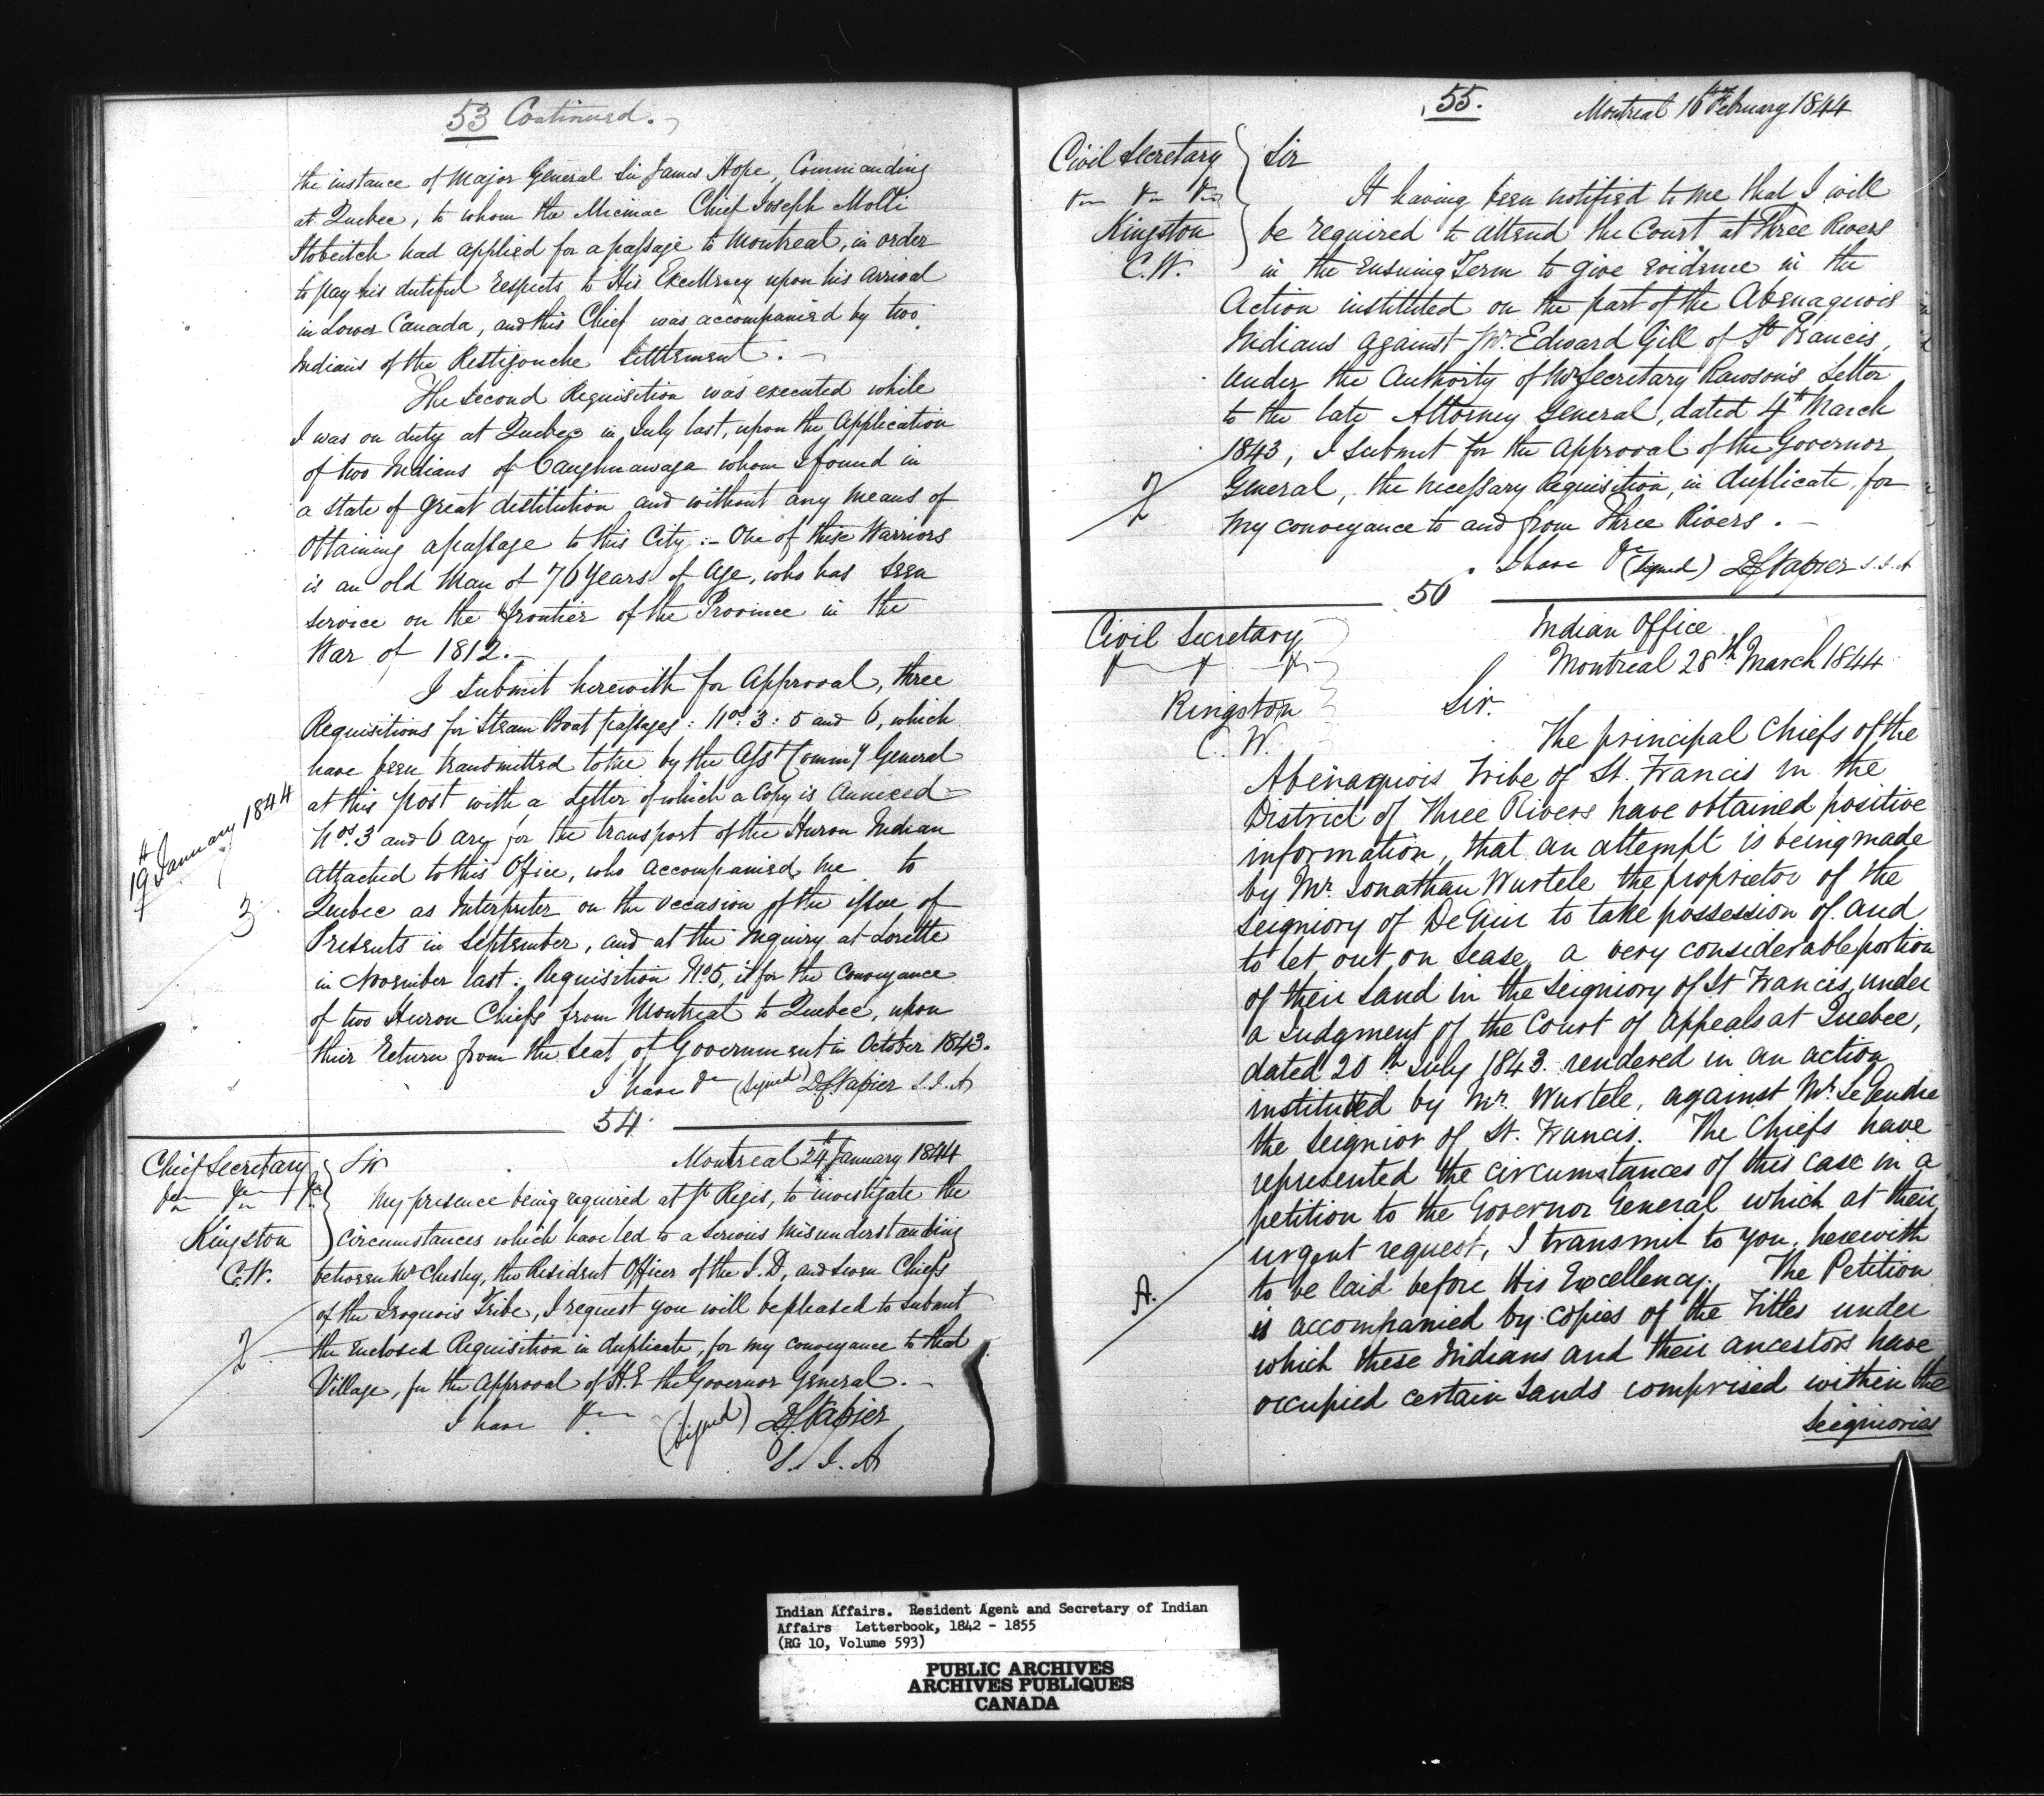 53 Continued.
the instance of Major General Sir James Hope, Commanding
at Quebec, to whom the Micmac Chief Joseph Malli
had applied for a passage to Montreal, in order
to pay his dutiful respects to His Excellency upon his arrival
in Lower Canada, and this Chief was accompanied by two
Indians of the Restigouche Settlement. —
The Second Requisition was executed while
I was on duty at Quebec in July last, upon the Application
of two Indians of Caughnawaga whom I found in
a state of great destitution and without any means of
obtaining a passage to this City :- One of these Warriors
is an old Man of 76 Years of Age, who has seen
service on the frontier of the Province in the
War of 1812. —
I submit herewith for Approval, three
Requisitions for Steam Boat passages: Nos. 3: 5 and 6, which
have been transmitted to me by the Asst. Commy General
at this post with a Letter of which a Copy is Annexed —
19th January 1844
Nos. 3 and 6 are for the transport of the Huron Indian
attached to this Office, who accompanied me to
3
Quebec as Interpreter on the occasion of the issue of
Presents in September, and at the Inquiry at Lorette
in November last: Requisition No. 5, is for the Conveyance
of two Huron Chiefs from Montreal to Quebec, upon
their return from the Seat of Government in October 1843.
I have &c (signed) D.C. Napier S.I.A
54
Chief Secretary
&c &c &c
Kingston
C.W.
Sir Montreal 24th January 1844
My presence being required at St Regis, to investigate the
circumstances which have led to a serious misunderstanding
between Mr Chesley, the Resident Officer of the I.D, and seven Chiefs
of the Iroquois Tribe, I request you will be pleased to submit
2
the enclosed Requisition in duplicate, for my conveyance to that
Village, for the Approval of H.E the Governor General. —
I have &c (signed) D.C. Napier
S. I. A
55. Montreal 16th February 1844
Civil Secretary
&c &c &c
Kingston
C.W.
Sir
It having been notified to me that I will
be required to attend the Court at Three Rivers
in the ensuing Term to give evidence in the
Action instituted on the part of the Abenaquois
Indians against Mr. Edward Gill of St Francis,
under the Authority of Mr Secretary Rawson's Letter
to the late Attorney General, dated 4th March
1843, I submit for the Approval of the Governor
2
General, the necessary Requisition, in duplicate, for
my conveyance to and from Three Rivers. —
I have &c (signed) D.C. Napier S.I.A
56
Civil Secretary
&c &c &c
Kingston
C. W.
Indian Office
Montreal 28th March 1844
Sir.
The principal Chiefs of the
Abenaquois Tribe of St. Francis in the
District of Three Rivers have obtained positive
information, that an attempt is being made
by Mr. Jonathan Wurtele the proprietor of the
Seigniory of DeGuir to take possession of and
to let out on Lease, a very considerable portion
of their Land in the Seigniory of St Francis, under
a Judgment of the Court of Appeals at Quebec,
dated 20th July 1843 rendered in an action
instituted by Mr. Wurtele, against Mr. LeGendre
the Seignior of St. Francis. The Chiefs have
represented the circumstances of this case in a
petition to the Governor General which at their
urgent request, I transmit to you, herewith
A.
to be laid before His Excellency. The Petition
is accompanied by copies of the Titles under
which these Indians and their ancestors have
occupied certain Lands comprised within the
Seigniories
Indian Affairs. Resident Agent and Secretary of Indian
Affairs Letterbook, 1842 - 1855
(RG 10, Volume 593)
PUBLIC ARCHIVES
ARCHIVES PUBLIQUES
CANADA